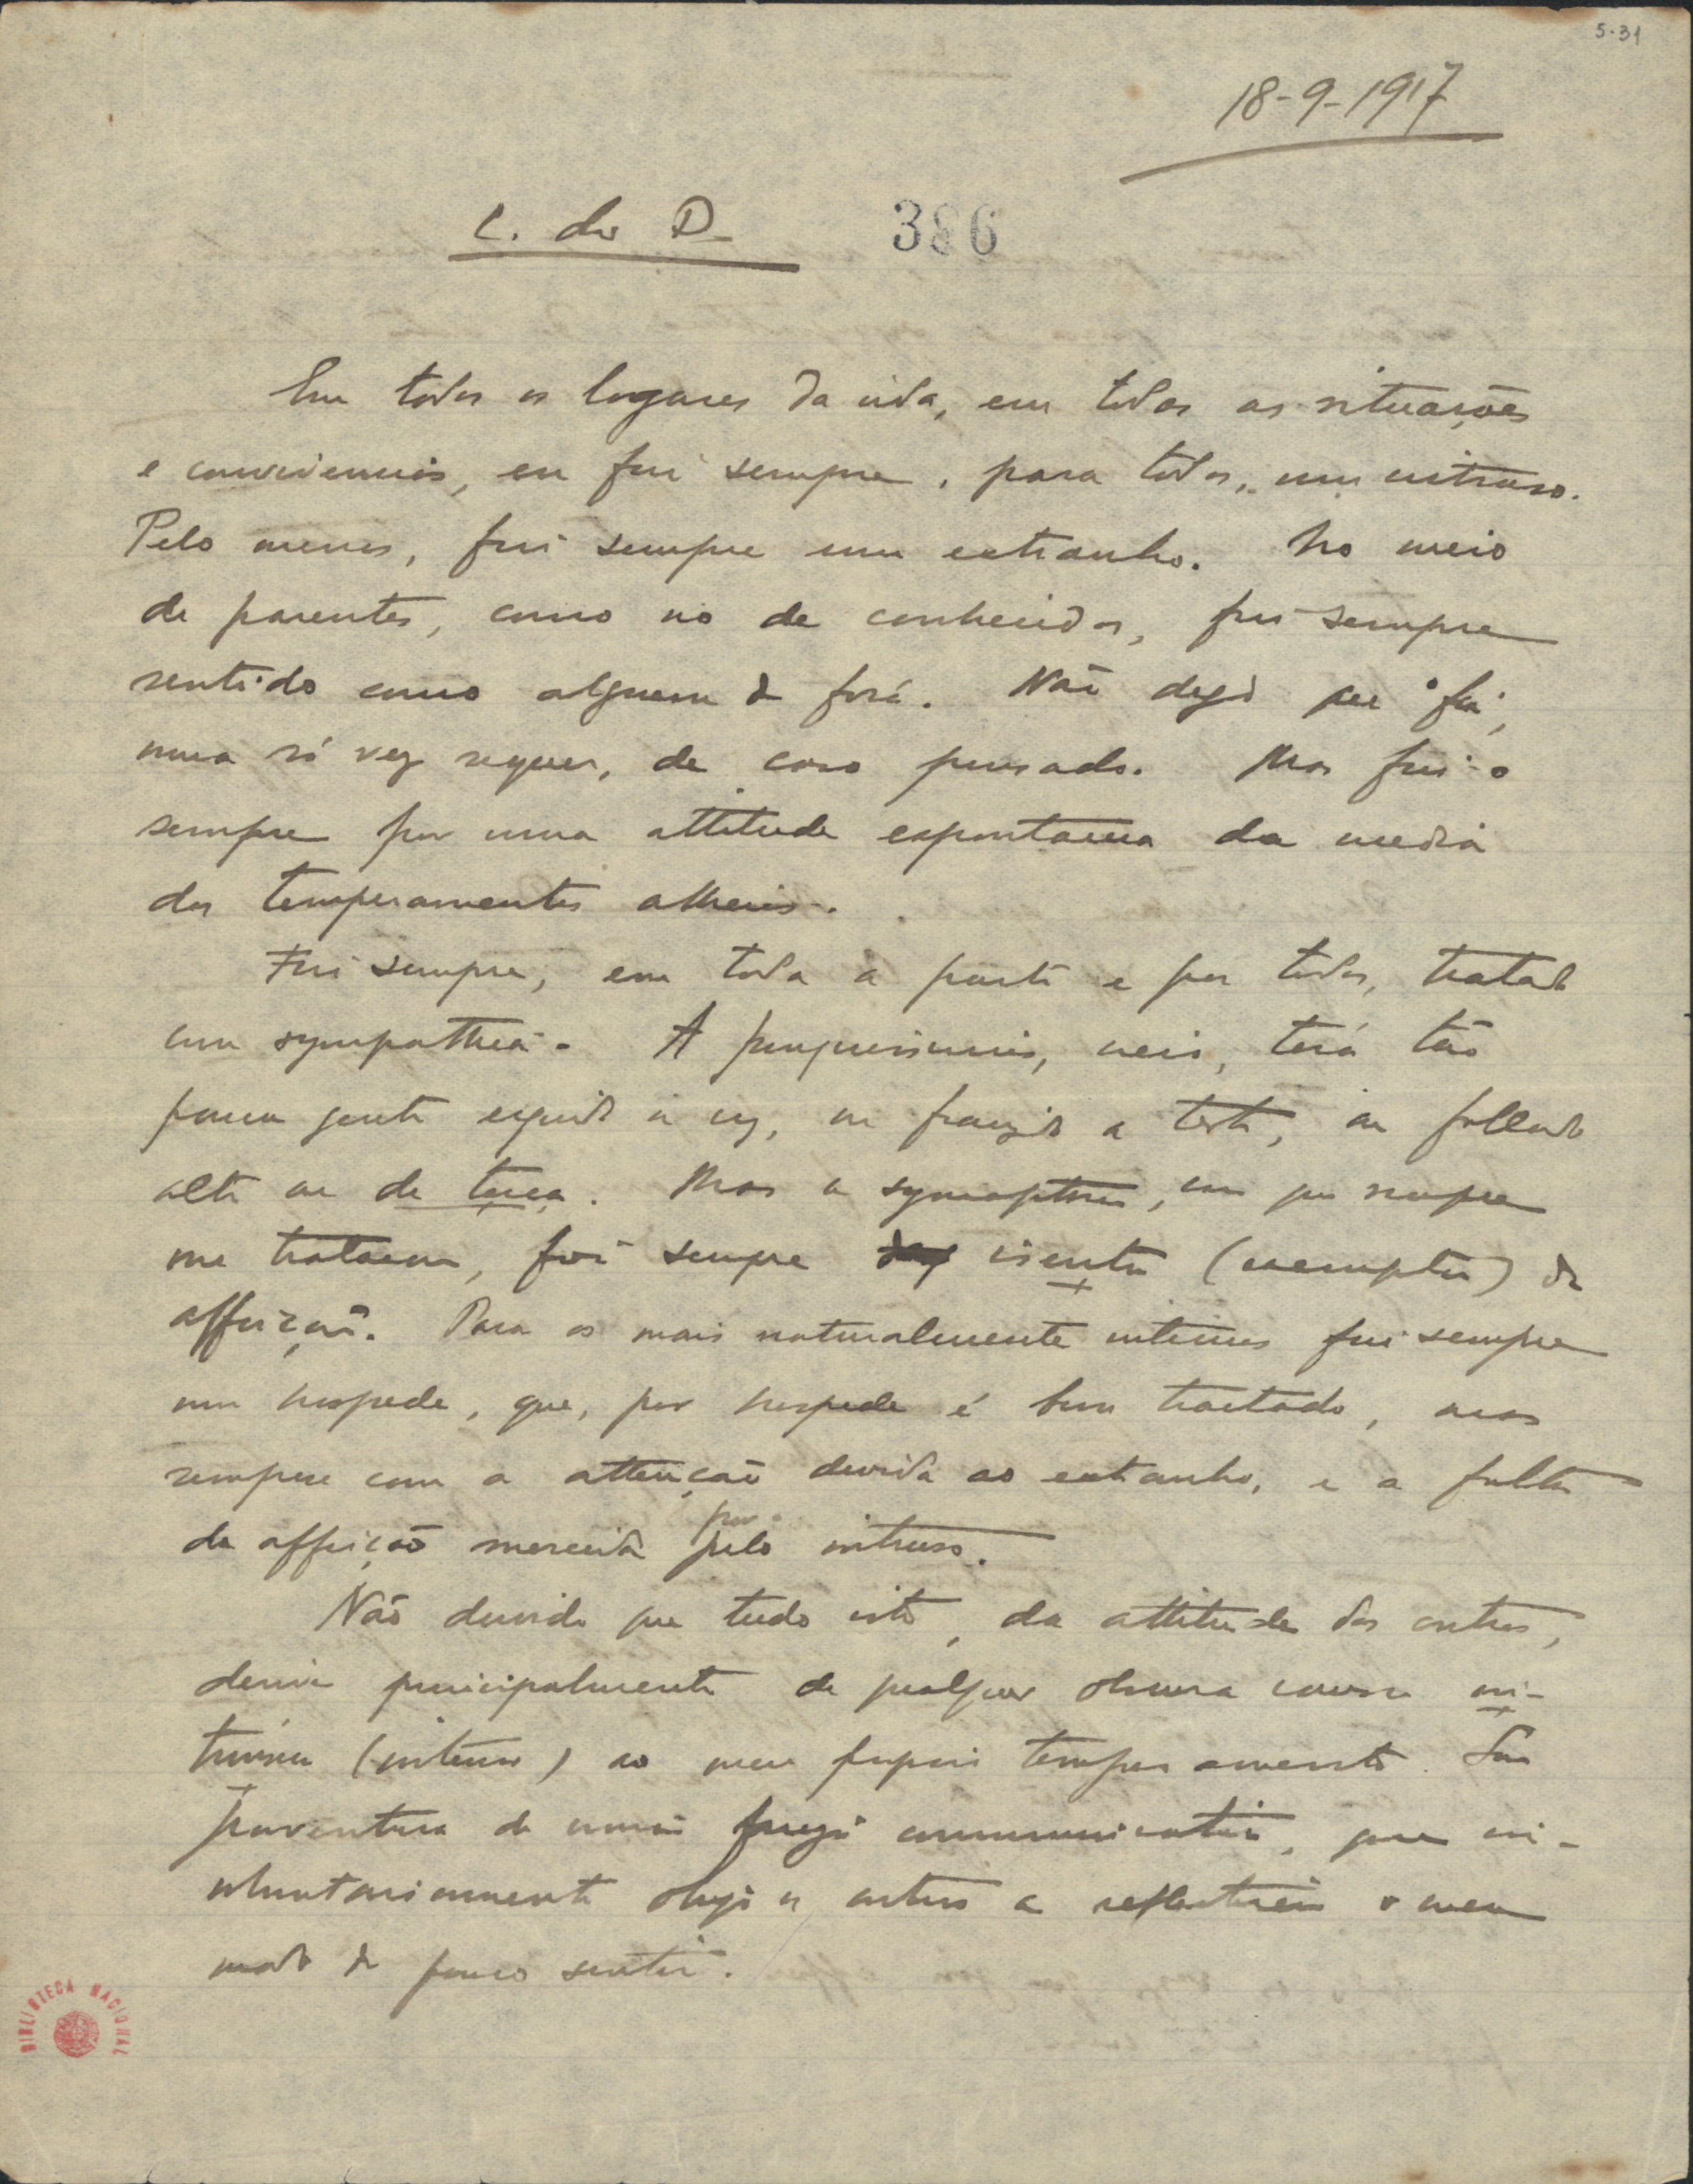 5-31
18-9-1917
L. do D.
386
Em todos os logares da vida, em todas as situações
e convivencias, eu fui sempre, para todos, um intruso.
Pelo menos, fui sempre um extranho. No meio
de parentes, como no de conhecidos, fui sempre
sentido como alguem de fóra. Não digo que o fui,
uma só vez sequer, de caso pensado. Mas fui-o
sempre por uma attitude espontanea da media
dos temperamentos alheios.
Fui sempre, em toda a parte e por todos, tratado
com sympathia. A pouquissimos, creio, terá tão
pouca gente erguido a voz, ou franzido a testa, ou fallado
alto ou de terça. Mas a sympathia, com que sempre
me trataram, foi sempre isenta (exempta) de
affeição. Para os mais naturalmente intimos fui sempre
um hospede, que, por hospede é bem tractado, mas
sempre com a attenção devida ao extranho, e a falta
de affeição merecida pelo intruso.
por
Não duvido que tudo isto, da attitude dos outros,
derive principalmente de qualquer obscura causa in-
trinseca (interior) ao meu proprio temperamento. Sou
porventura de uma frieza communicativa, que in-
voluntariamente obriga os outros a reflectirem o meu
modo de pouco sentir.
BIBLIOTECA NACIONAL